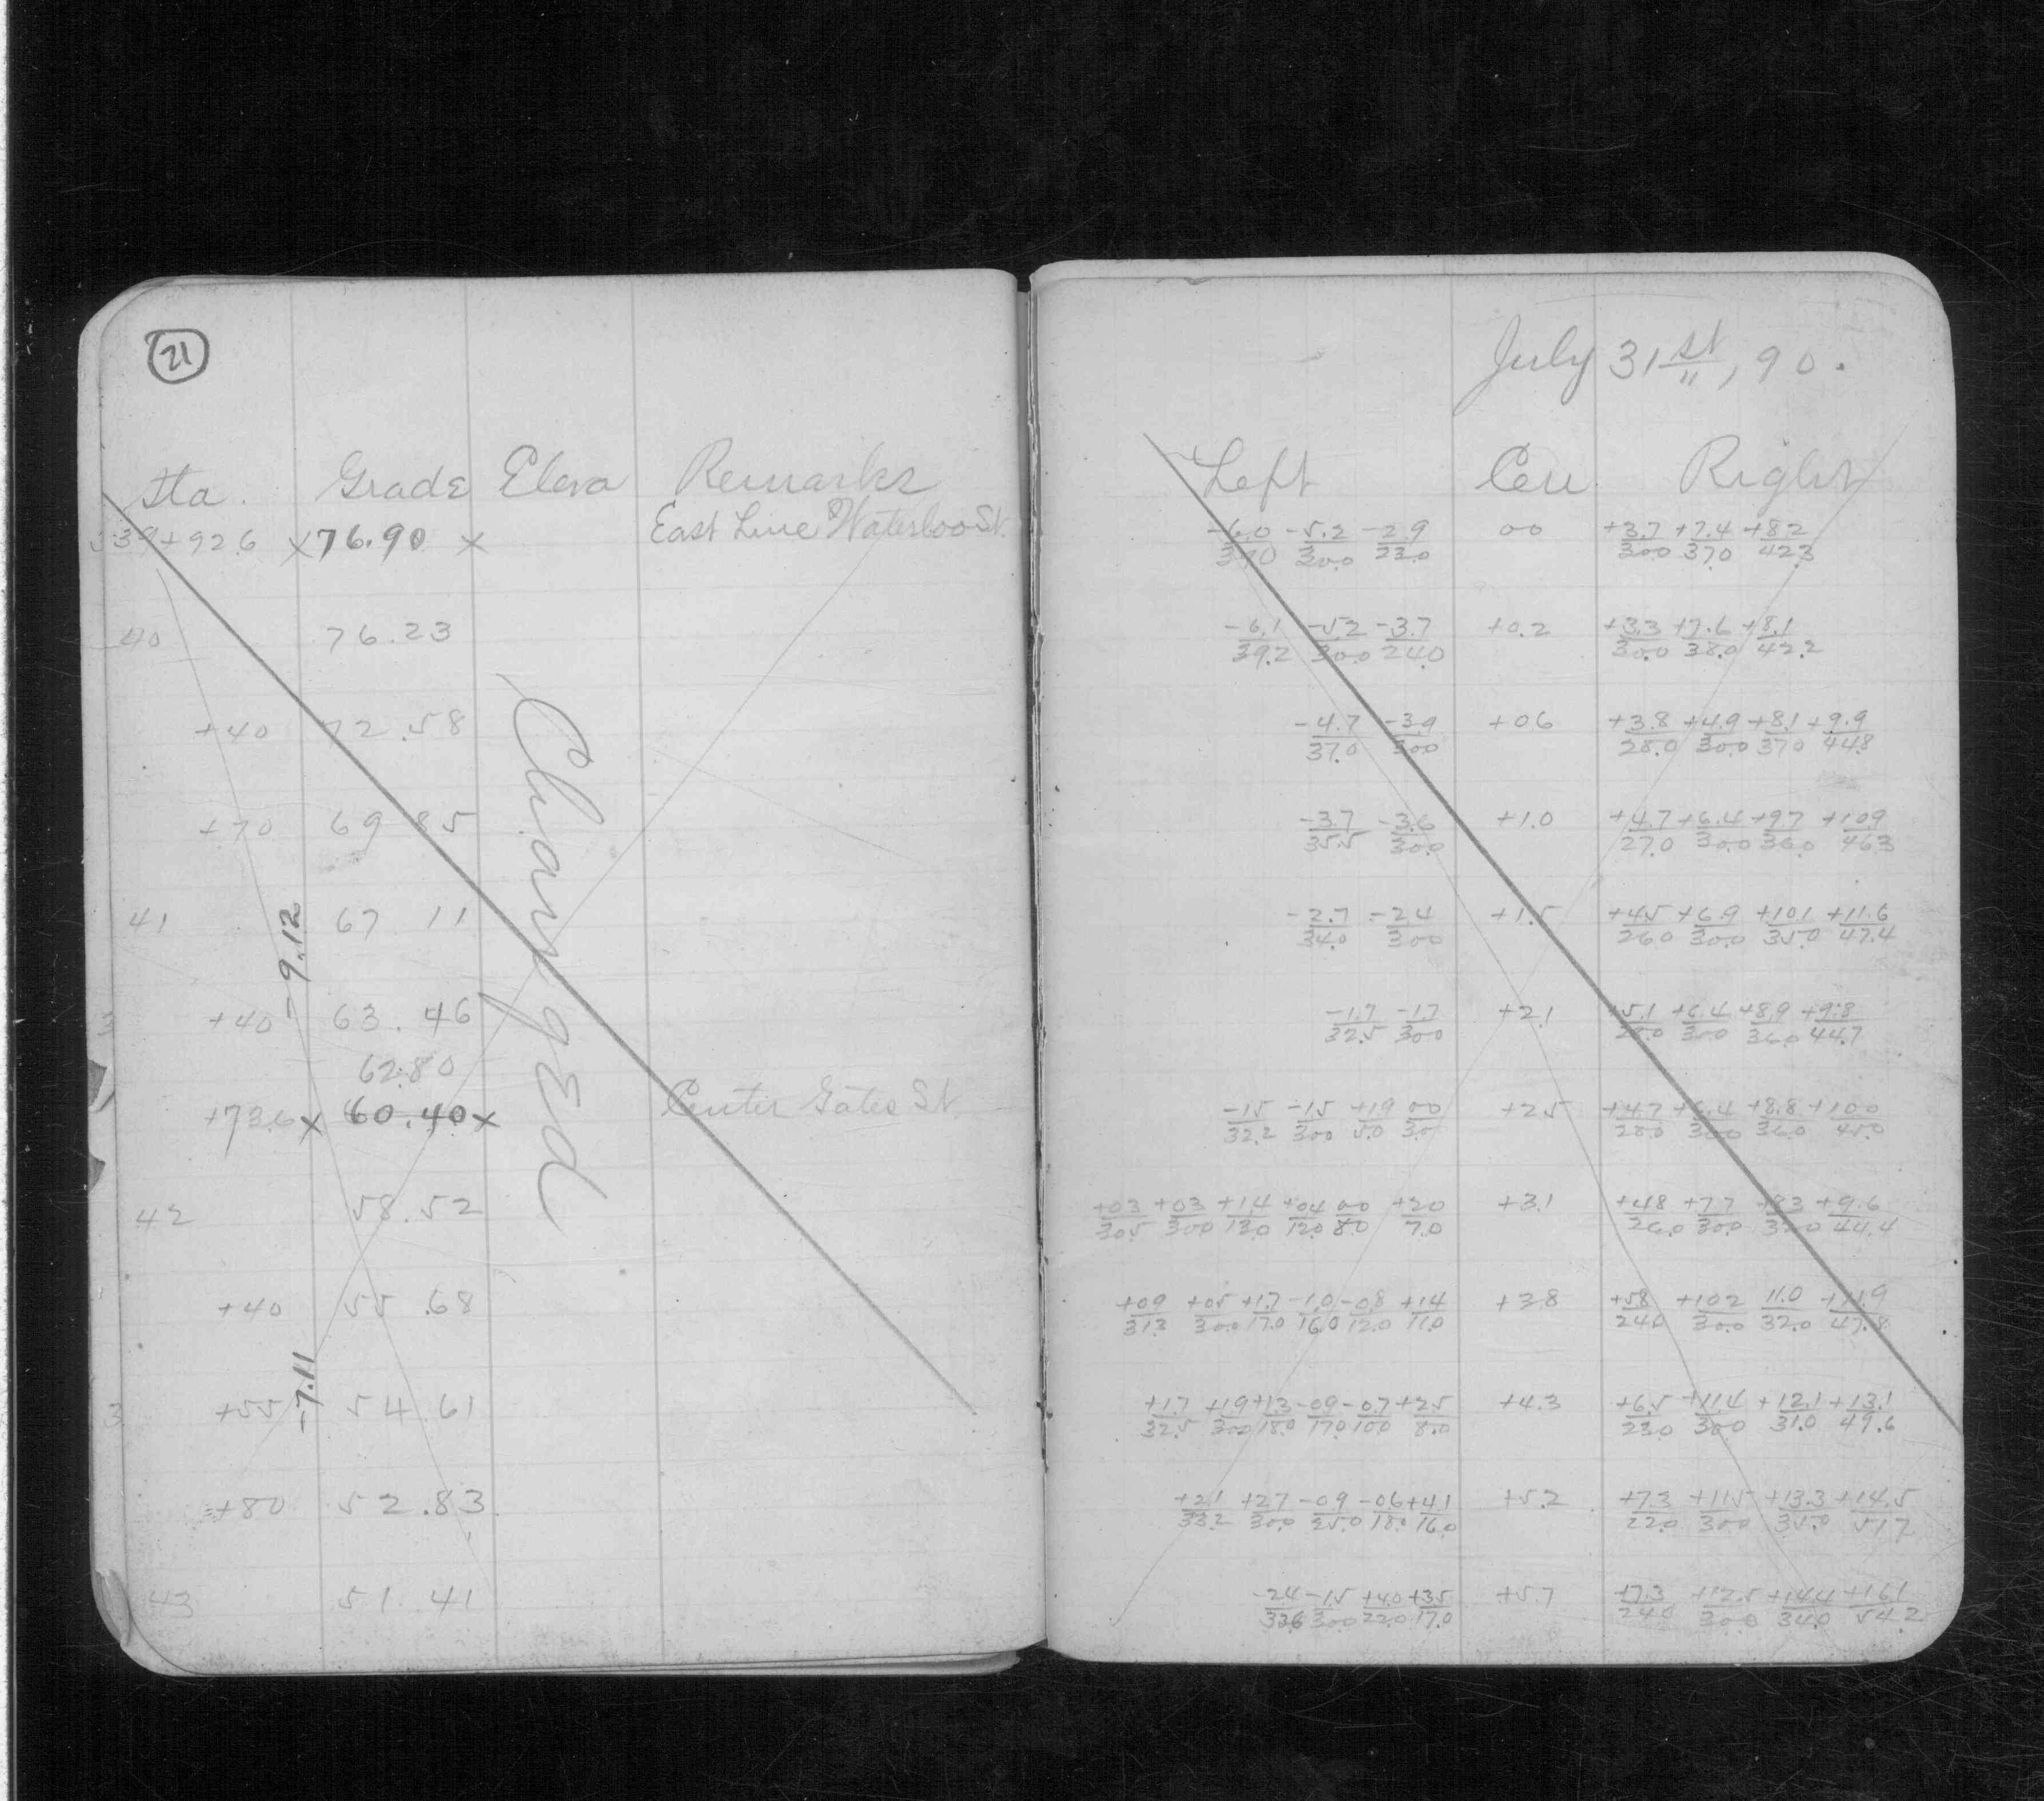 21
Sta. Grade Eleva Remarks
39+92.6 x 76.90 x East Line Waterloo St.
40 76.23
+40 72.58
+70 69 85
41 67 11
-9.12
+40 63.46
62.80
+73.6 x 60.40 x Center Gates St
42 58.52
+40 55.68
-7.11
+55 54.61
+80 52.83
43 51 41
Changed
July 31st, 90.
Left Cen. Right
-6.0/39.0 -5.2/30.0 -2.9/23.0 00 +3.7/30.0 +7.4/37.0 +8.2/42.3
-6.1/39.2 -5.2/30.0 -3.7/24.0 +0.2 +3.3/30.0 +7.6/38.0 +8.1/42.2
-4.7/37.0 -3.9/30.0 +0.6 +3.8/28.0 +4.9/30.0 +8.1/37.0 +9.9/44.8
-3.7/35.5 -3.6/30.0 +1.0 +4.7/27.0 +6.4/30.0 +9.7/36.0 +10.9/46.3
-2.7/34.0 -2.4/30.0 +1.5 +4.5/26.0 +6.9/30.0 +10.1/35.0 +11.6/47.4
-1.7/32.5 -1.7/30.0 +2.1 +5.1/25.0 +6.4/30.0 +8.9/36.0 +9.8/44.7
-1.5/32.2 -1.5/30.0 +1.9/5.0 00/3.0 +2.5 +4.7/28.0 +6.4/30.0 +8.8/36.0 +10.0/45.0
+0.3/30.5 +0.3/30.0 +1.4/13.0 +0.4/12.0 00/8.0 +2.0/7.0 +3.1 +4.8/26.0 +7.7/30.0 +8.3/32.0 +9.6/44.4
+0.9/31.3 +0.5/30.0 +1.7/17.0 -1.0/16.0 -0.8/12.0 +1.4/11.0 +3.8 +5.8/24.0 +10.2/30.0 11.0/32.0 +11.9/47.8
+1.7/32.5 +1.9/30.0 +1.3/18.0 -0.9/17.0 -0.7/10.0 +2.5/8.0 +4.3 +6.5/23.0 +11.4/30.0 +12.1/31.0 +13.1/49.6
+2.1/33.2 +2.7/30.0 -0.9/25.0 -0.6/18.0 +4.1/16.0 +5.2 +7.3/22.0 +11.5/30.0 +13.3/35.0 +14.5/51.7
-2.4/33.6 -1.5/30.0 +4.0/22.0 +3.5/17.0 +5.7 +7.3/24.0 +12.5/30.0 +14.4/34.0 +16.1/54.2